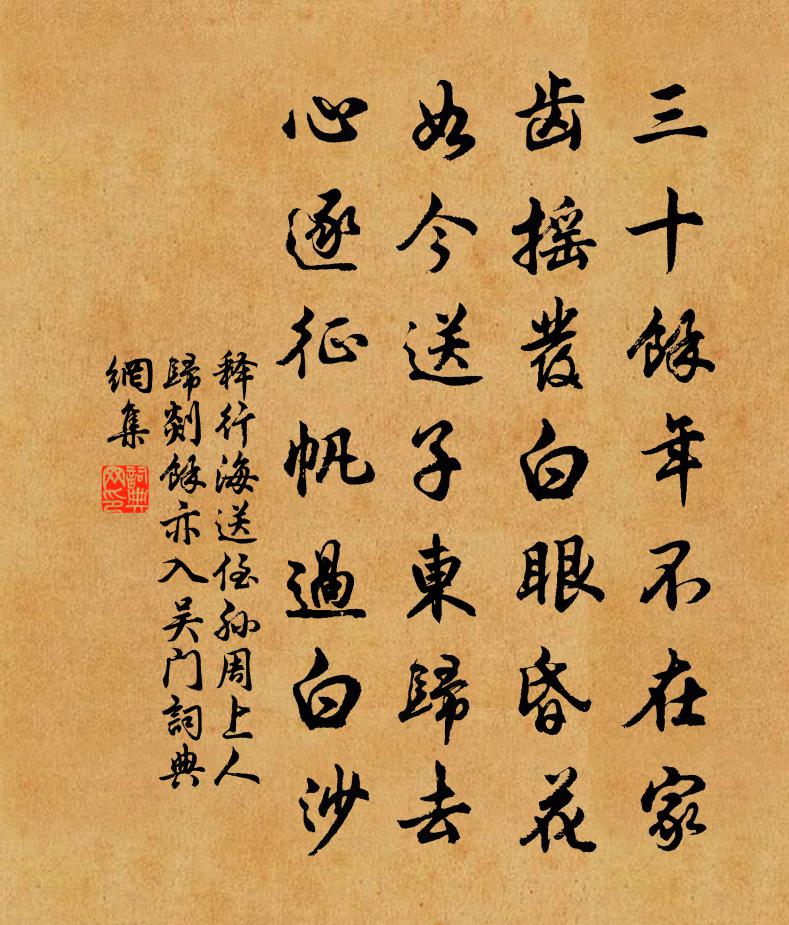 三十餘年不在家
齿摇發白眼昏花
如今送子東歸去
心逐征帆過白沙
释行海送侄孙周上人
歸剡餘亦入吴门詞典
網集
詞典
网印